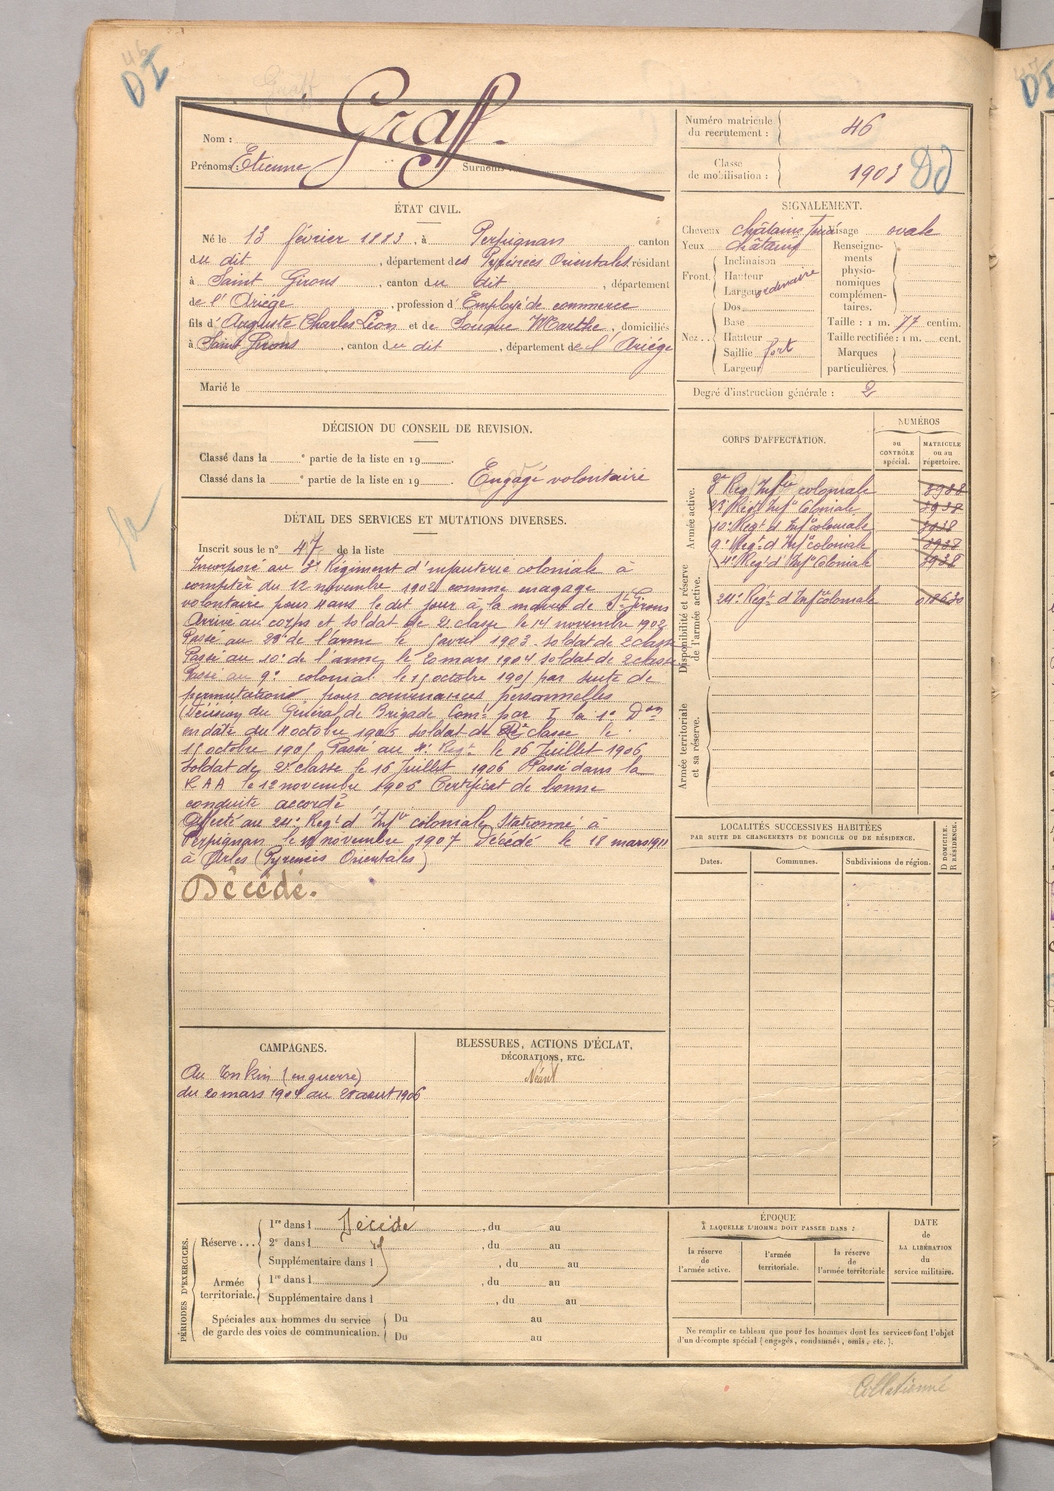 DI
Nom : Graff.
Prénoms : Etienne Surnoms
Numéro matricule du recrutement : 46
Classe de mobilisation : 1903
ÉTAT CIVIL.
Né le 13 février 1883, à Perpignan canton
du dit, département des Pyrénées Orientales, résidant
à Saint Girons, canton du dit, département
de l'Ariége, profession d'Employé de commerce
fils d'Auguste Charles Léon et de Souque Marthe, domiciliés
à Saint Girons, canton du dit, département de l'Ariége
Marié le
SIGNALEMENT.
Cheveux châtains Visage ovale
Yeux châtains
Front. Inclinaison
Hauteur
Largeur ordinaire
Nez.. Dos
Base
Hauteur
Saillie fort
Largeur
Renseignements physionomiques complémentaires.
Taille : 1 m. 77 centim.
Taille rectifiée : 1 m. cent.
Marques particulières.
Degré d'instruction générale : 2
DÉCISION DU CONSEIL DE REVISION.
Classé dans la e partie de la liste en 19 .
Classé dans la e partie de la liste en 19 . Engagé volontaire
CORPS D'AFFECTATION.
NUMÉROS
au CONTRÔLE spécial.
MATRICULE ou au répertoire.
Armée active.
3e Reg Infie coloniale 8938
22e Regt Infie Coloniale 8938
10e Regt d'Infie coloniale 8938
9e Regt d'Infie coloniale 8938
4e Regt d'Infie Coloniale 8938
Disponibilité et réserve de l'armée active.
24e Regt d'Infie coloniale
Armée territoriale et sa réserve.
DÉTAIL DES SERVICES ET MUTATIONS DIVERSES.
Inscrit sous le n° 47 de la liste
Incorporé au 3e Régiment d'infanterie coloniale à
compter du 12 novembre 1902 comme engagé
volontaire pour 4 ans le dit jour à la mairie de St Girons
Arrivé au corps et soldat de 2e classe le 14 novembre 1902
Passé au 22e de l'arme le avril 1903 soldat de 2 classe
Passé au 10e de l'arme le 20 mars 1904 soldat de 2 classe
Passé au 9e colonial le 15 octobre 1905 par suite de
permutation pour convenances personnelles
(Décision du Général de Brigade Comt par I la 1e Don
en date du 4 octobre 1905 soldat de 2e classe le
15 octobre 1905 Passé au 4e Regt le 16 Juillet 1906
soldat de 2e classe le 16 Juillet 1906 Passé dans la
R A A le 12 novembre 1906 Certificat de bonne
conduite accordé
Affecté au 24e Regt d'Infie coloniale Stationné à
Perpignan le novembre 1907 Décédé le 18 mars 1911
à Arles (Pyrénées Orientales)
Décédé.
LOCALITÉS SUCCESSIVES HABITÉES
PAR SUITE DE CHANGEMENTS DE DOMICILE OU DE RÉSIDENCE.
Dates. Communes. Subdivisions de région. D DOMICILE. R RÉSIDENCE.
CAMPAGNES.
Au Tonkin (en guerre)
du 20 mars 1904 au 28 aout 1906
BLESSURES, ACTIONS D'ÉCLAT,
DÉCORATIONS, ETC.
Néant
PÉRIODES D'EXERCICES.
Réserve... 1re dans l Décédé, du au
2e dans l, du au
Supplémentaire dans l, du au
Armée territoriale. 1re dans l, du au
Supplémentaire dans l, du au
Spéciales aux hommes du service de garde des voies de communication. Du au
Du au
ÉPOQUE
À LAQUELLE L'HOMME DOIT PASSER DANS :
la réserve de l'armée active.
l'armée territoriale.
la réserve de l'armée territoriale
DATE de LA LIBÉRATION du service militaire.
Ne remplir ce tableau que pour les hommes dont les services font l'objet
d'un décompte spécial (engagés, condamnés, omis, etc.).
Collationné